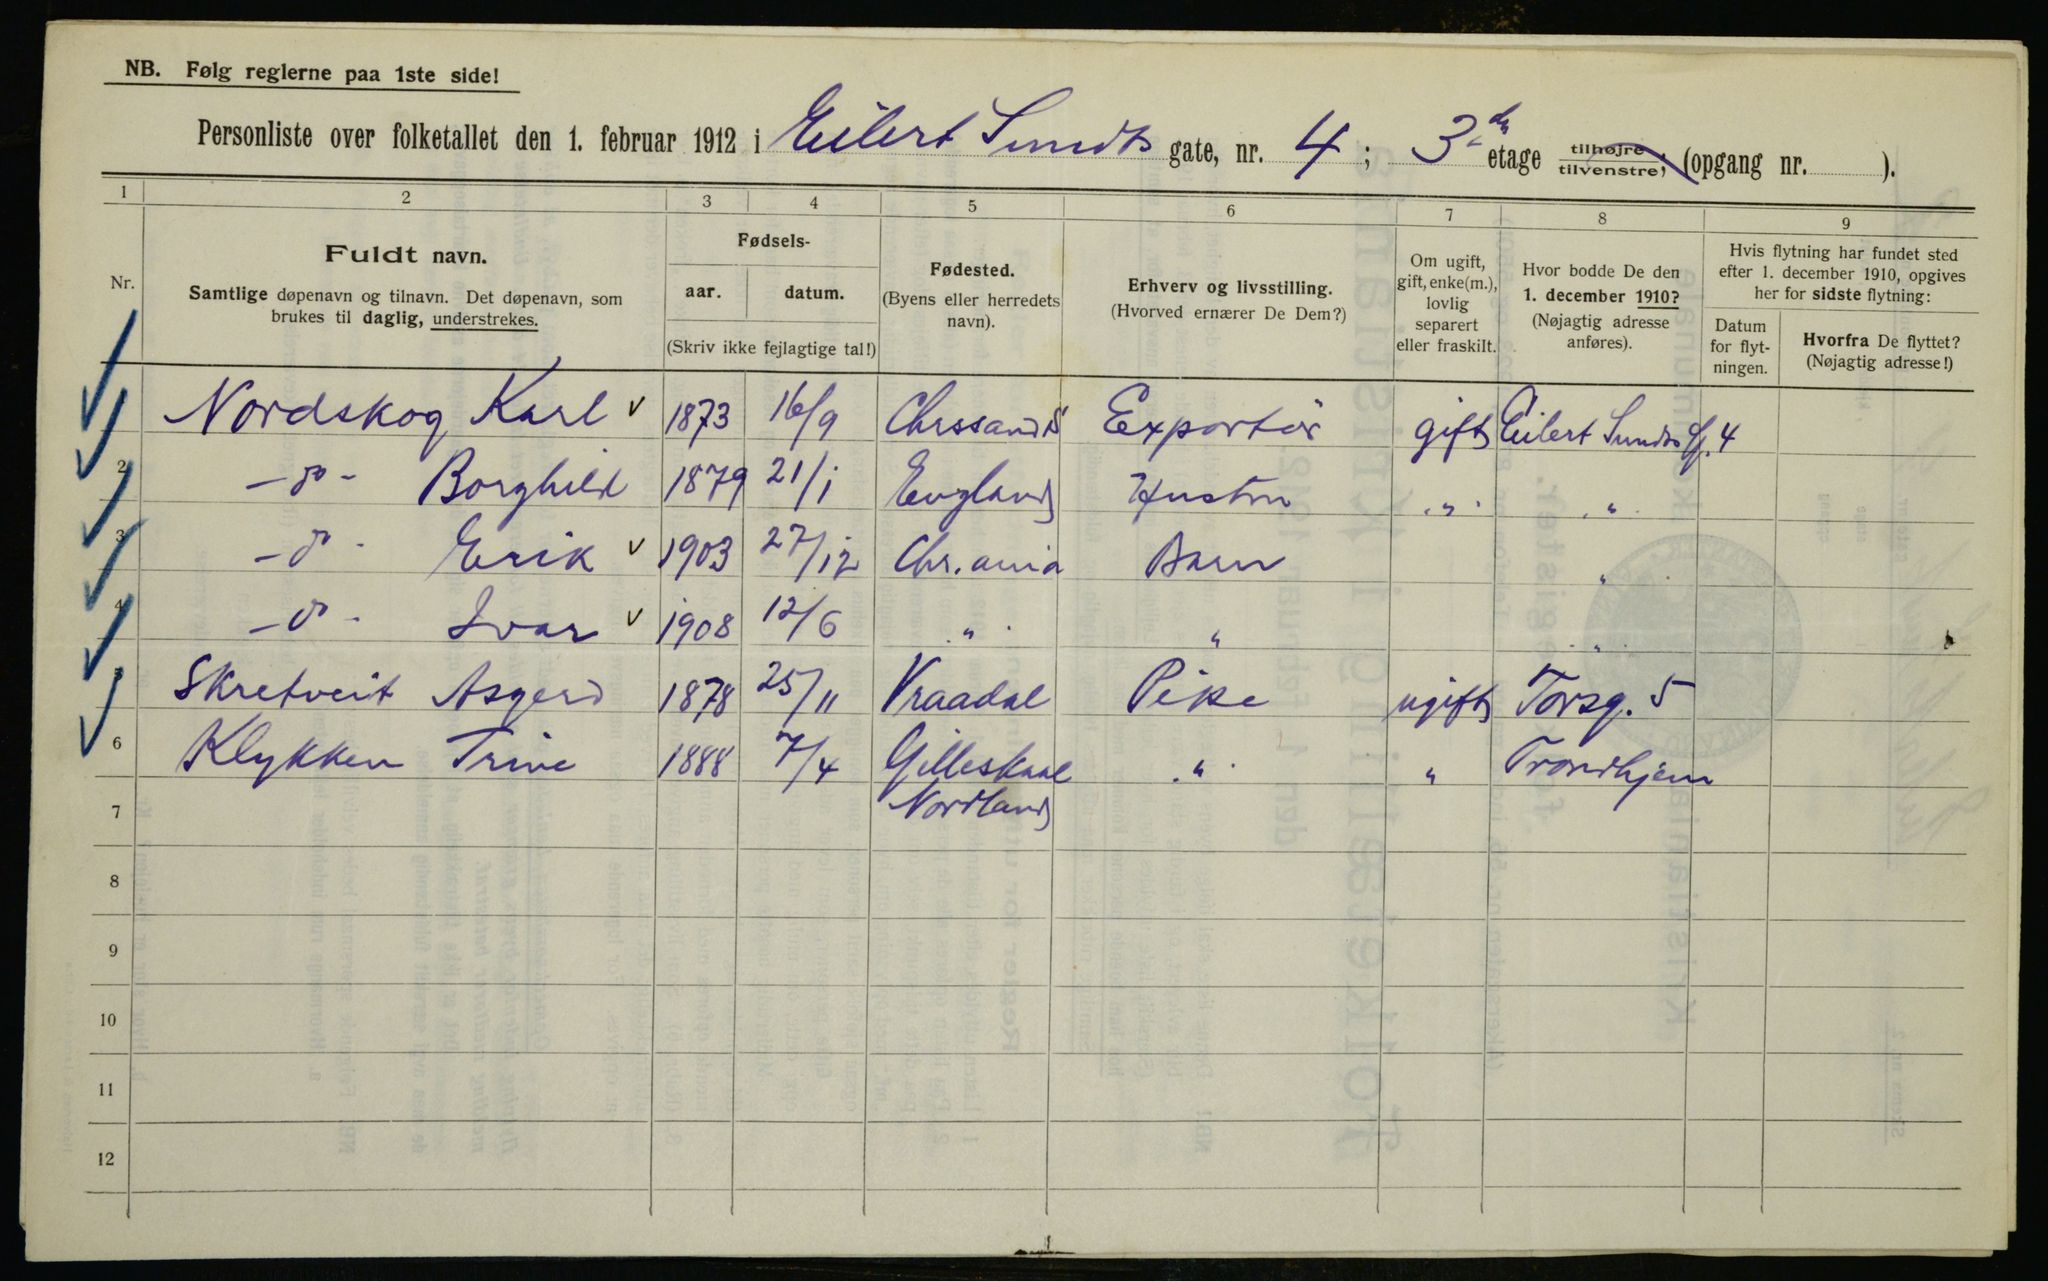 NB. Følg reglerne paa 1ste side!
Personliste over folketallet den 1. februar 1912 i Eilert Sundts gate, nr. 4; 3de etage tilhøjre, tilvenstre, (opgang nr. ).
1 2 3 4 5 6 7 8 9
Nr.
Fuldt navn.
Samtlige døpenavn og tilnavn. Det døpenavn, som
brukes til daglig, understrekes.
Fødsels-
aar. datum.
(Skriv ikke fejlagtige tal!)
Fødested.
(Byens eller herredets
navn).
Erhverv og livsstilling.
(Hvorved ernærer De Dem?)
Om ugift,
gift, enke(m.),
lovlig
separert
eller fraskilt.
Hvor bodde De den
1. december 1910?
(Nøjagtig adresse
anføres).
Hvis flytning har fundet sted
efter 1. december 1910, opgives
her for sidste flytning:
Datum
for flyt-
ningen.
Hvorfra De flyttet?
(Nøjagtig adresse!)
Nordskog Karl v 1873 16/9 Chrssands Exportør gift Eilert Sundts G. 4
2 -do- Borghild 1879 21/1 England Hustru " "
3 -do- Erik v 1903 27/12 Chr.ania Barn "
4 -do- Ivar v 1908 12/6 " " "
5 Skretveit Asgerd 1878 25/11 Vraadal Pike ugift Torsg. 5
6 Klykken Trine 1888 7/4 Gilleskaal " " Trondhjem
7 Nordland
8
9
10
11
12